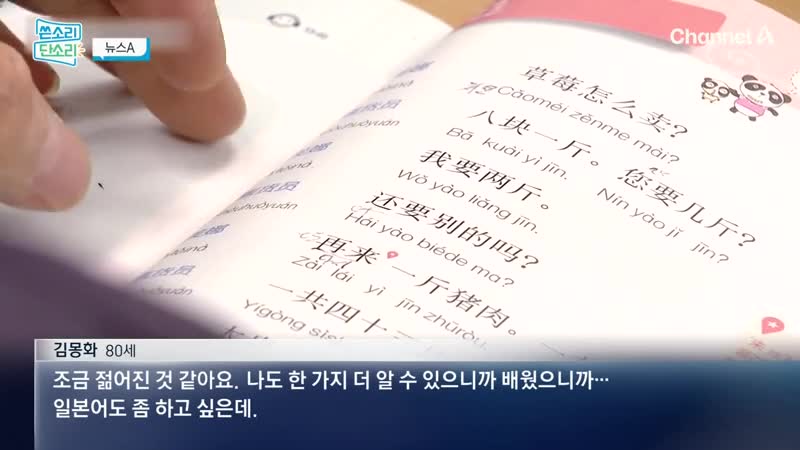 쓴소리
단소리
뉴스A
Channel A
草莓怎么卖?
Cǎoméi zěnme mài?
八块一斤。 您要几斤?
Bā kuài yì jīn. Nín yào jǐ jīn?
我要两斤。
Wǒ yào liǎng jīn.
还要别的吗?
Hái yào biéde ma?
再来一斤猪肉。
Zài lái yì jīn zhūròu.
一共四十三
Yígòng sìshí
김몽화 80세
조금 젊어진 것 같아요. 나도 한 가지 더 알 수 있으니까 배웠으니까…
일본어도 좀 하고 싶은데.